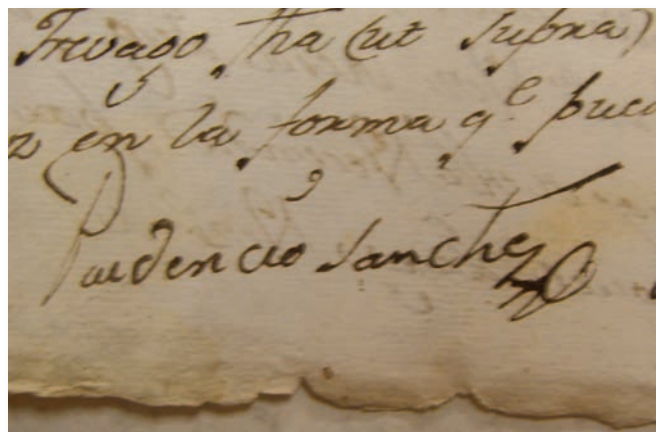 Trevago, fha (ut supra)
en la forma q.e pue
Prudencio Sanchez